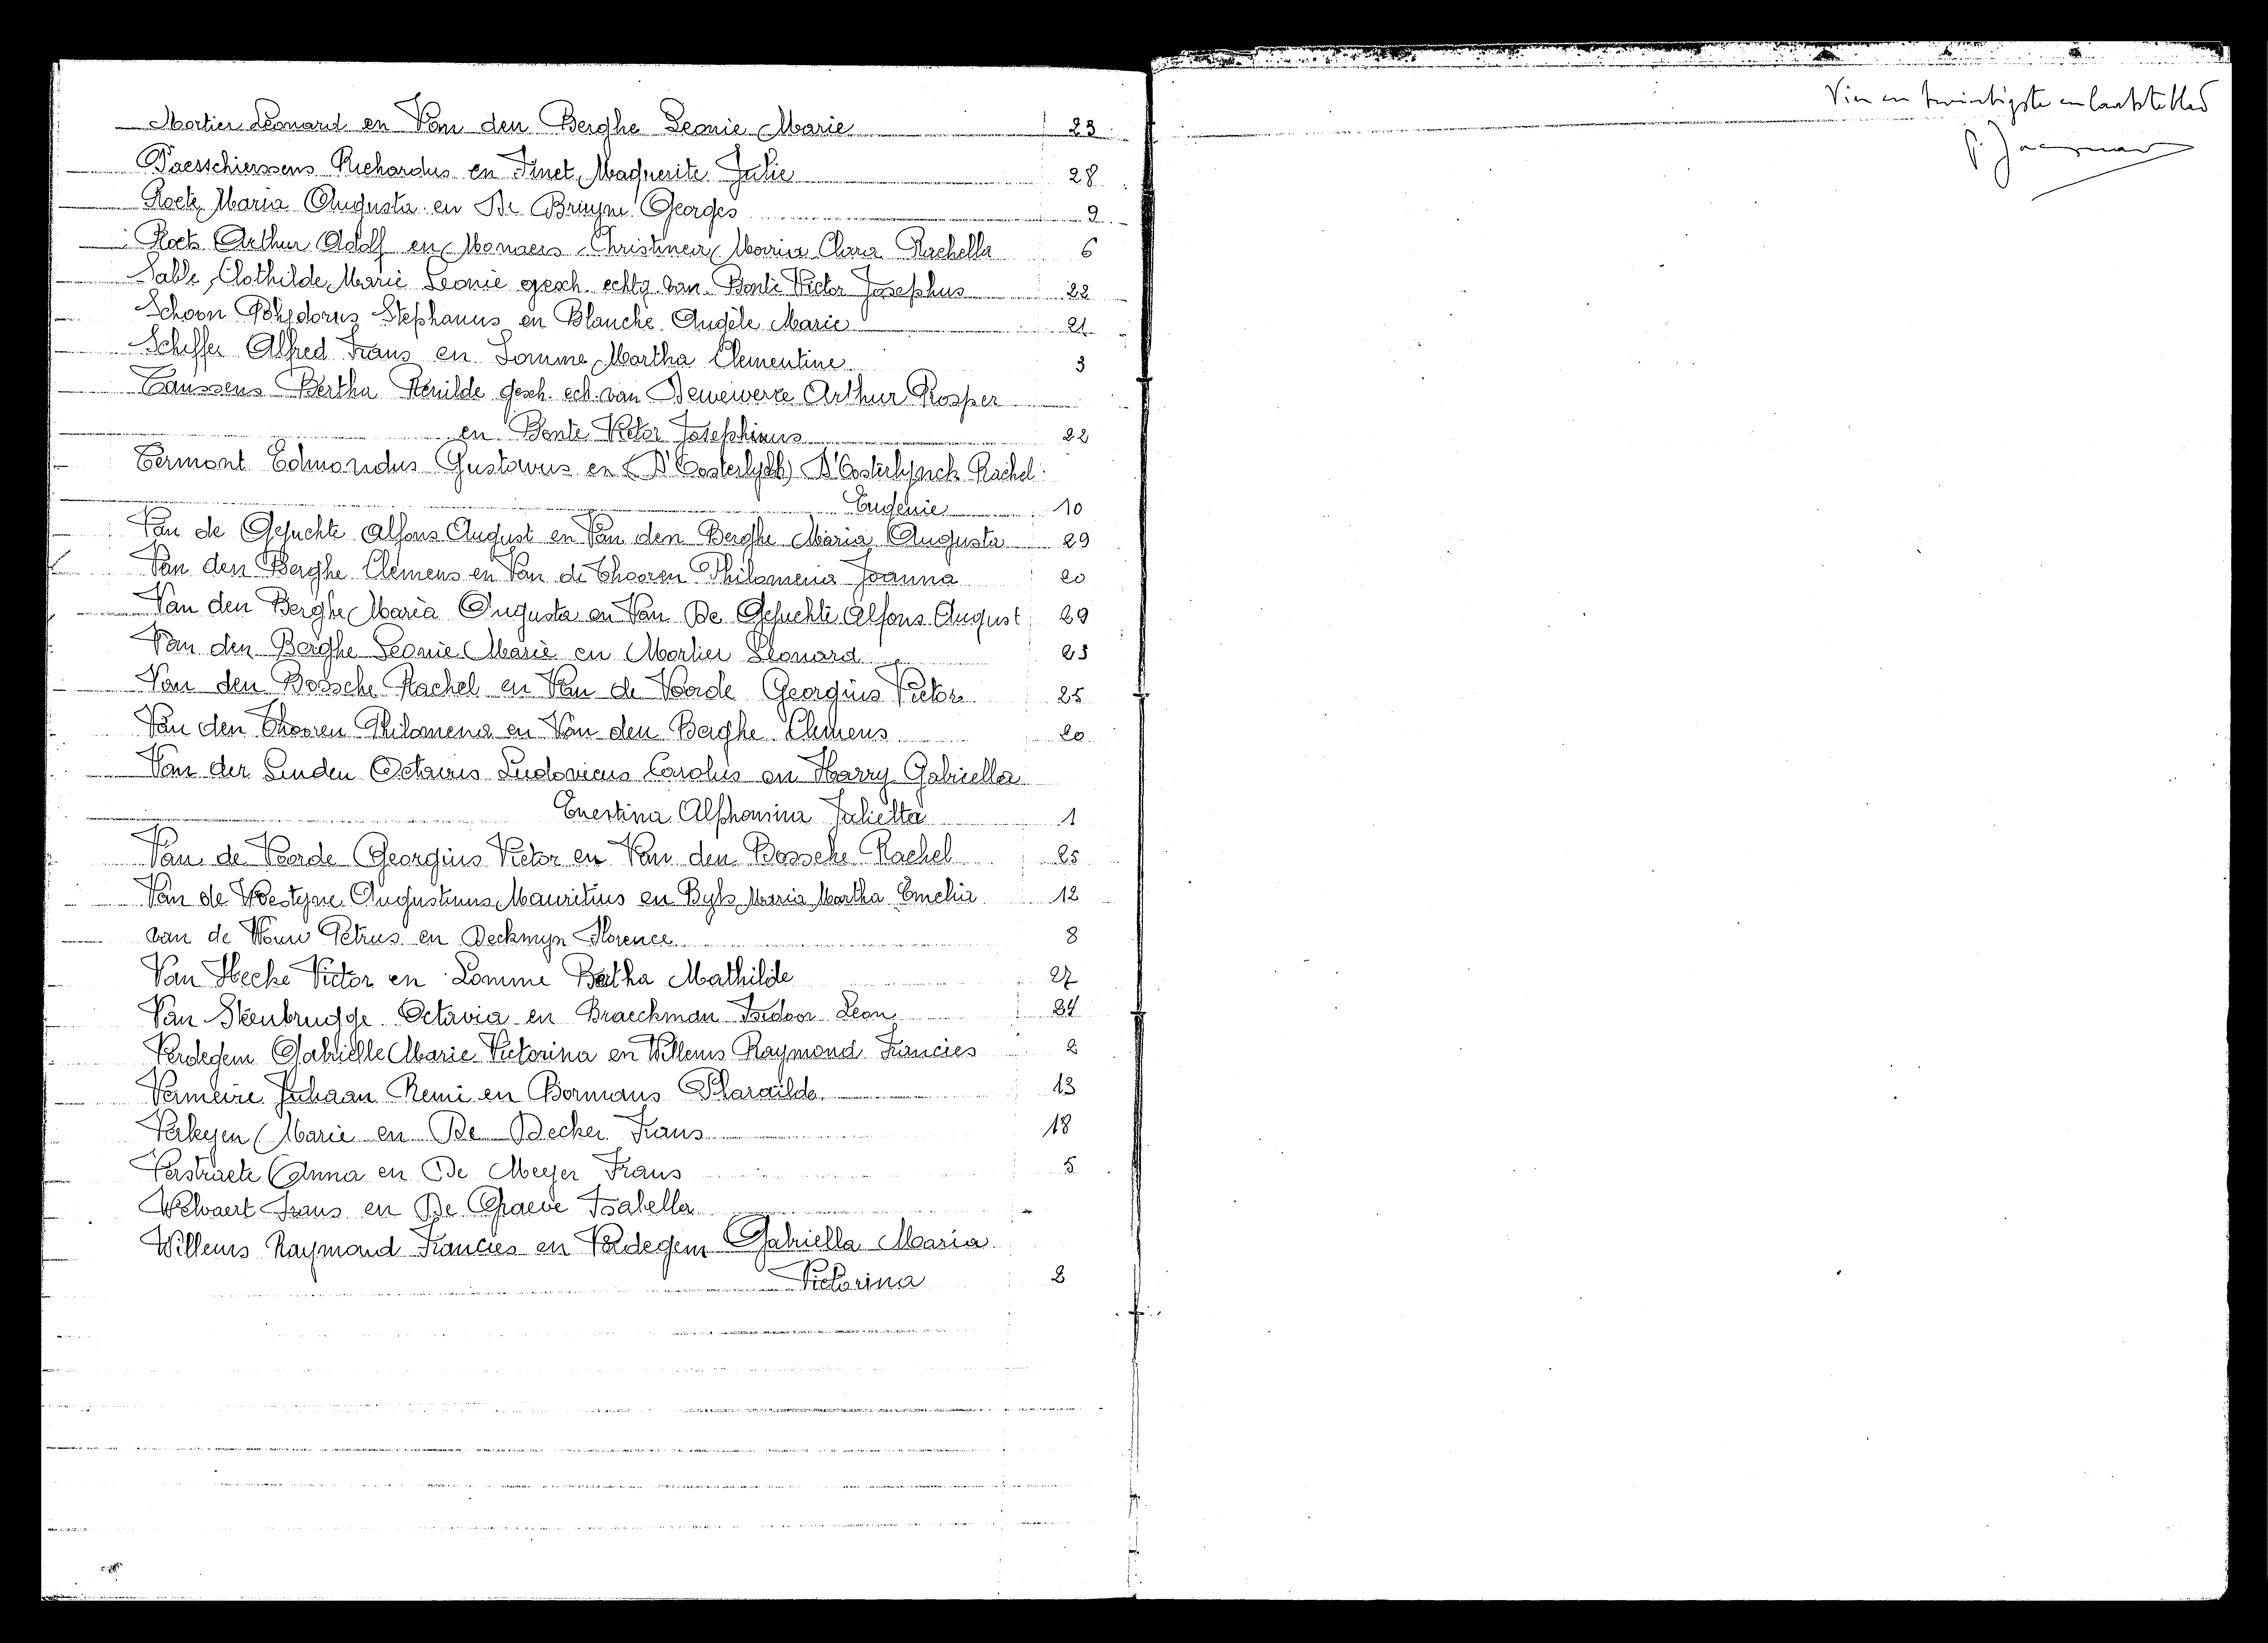 Mortier Leonard en Van den Berghe Leonie Marie 23
Paesschierssens Richardus en Finet Marguerite Julie 28
Roets Maria Augusta en De Bruyne Georges 9
Roets Arthur Adolf en Monaers Christinea Maria Clara Rachella 6
Sable, Clothilde Marie Leonie gesch. echtg. van Bonte Victor Josephus 22
Schoon Polydorus Stephanus en Blanche Angèle Marie 21
Scheffer Alfred Frans en Lomme Martha Clementine 3
Taussens Bertha Renilde gesch. ech. van Dewewerre Arthur Prosper
en Bonte Victor Josephinus 22
Termont Edmondus Gustavus en (D'Oosterlych) D'Oosterlynck Rachel
Eugenie 10
Van de Gejuchte Alfons August en Van den Berghe Maria Augusta 29
Van den Berghe Clemens en Van de Thooren Philomena Joanna 20
Van den Berghe Maria Augusta en Van De Gejuchte Alfons August 29
Van den Berghe Leonie Marie en Mortier Leonard 23
Van den Bossche Rachel en Van de Voorde Georgius Victor 25
Van den Thooren Philomena en Van den Berghe Clemens 20
Van der Linden Octavus Ludovicus Carolus en Harry Gabriella
Ernestina Alphonsina Julietta 1
Van de Voorde Georgius Victor en Van den Bossche Rachel 25
Van de Woestyne Augustinus Mauritius en Byls Maria Martha Emelia 12
van de Wouw Petrus en Deckmyn Florence 8
Van Hecke Victor en Lomme Bertha Mathilde 27
Van Steenbrugge Octavia en Braeckman Isidoor Leon 24
Verdegem Gabrielle Marie Victorina en Willems Raymond Francies 2
Vermeire Juliaan Remi en Bormans Pharailde 13
Verkeyen Marie en De Decker Frans 18
Verstraete Anna en De Meyer Frans 5
Welvaert Frans en De Graeve Isabella
Willems Raymond Francies en Verdegem Gabriella Maria
Victorina 2
Vier en twintigste en laatste blad